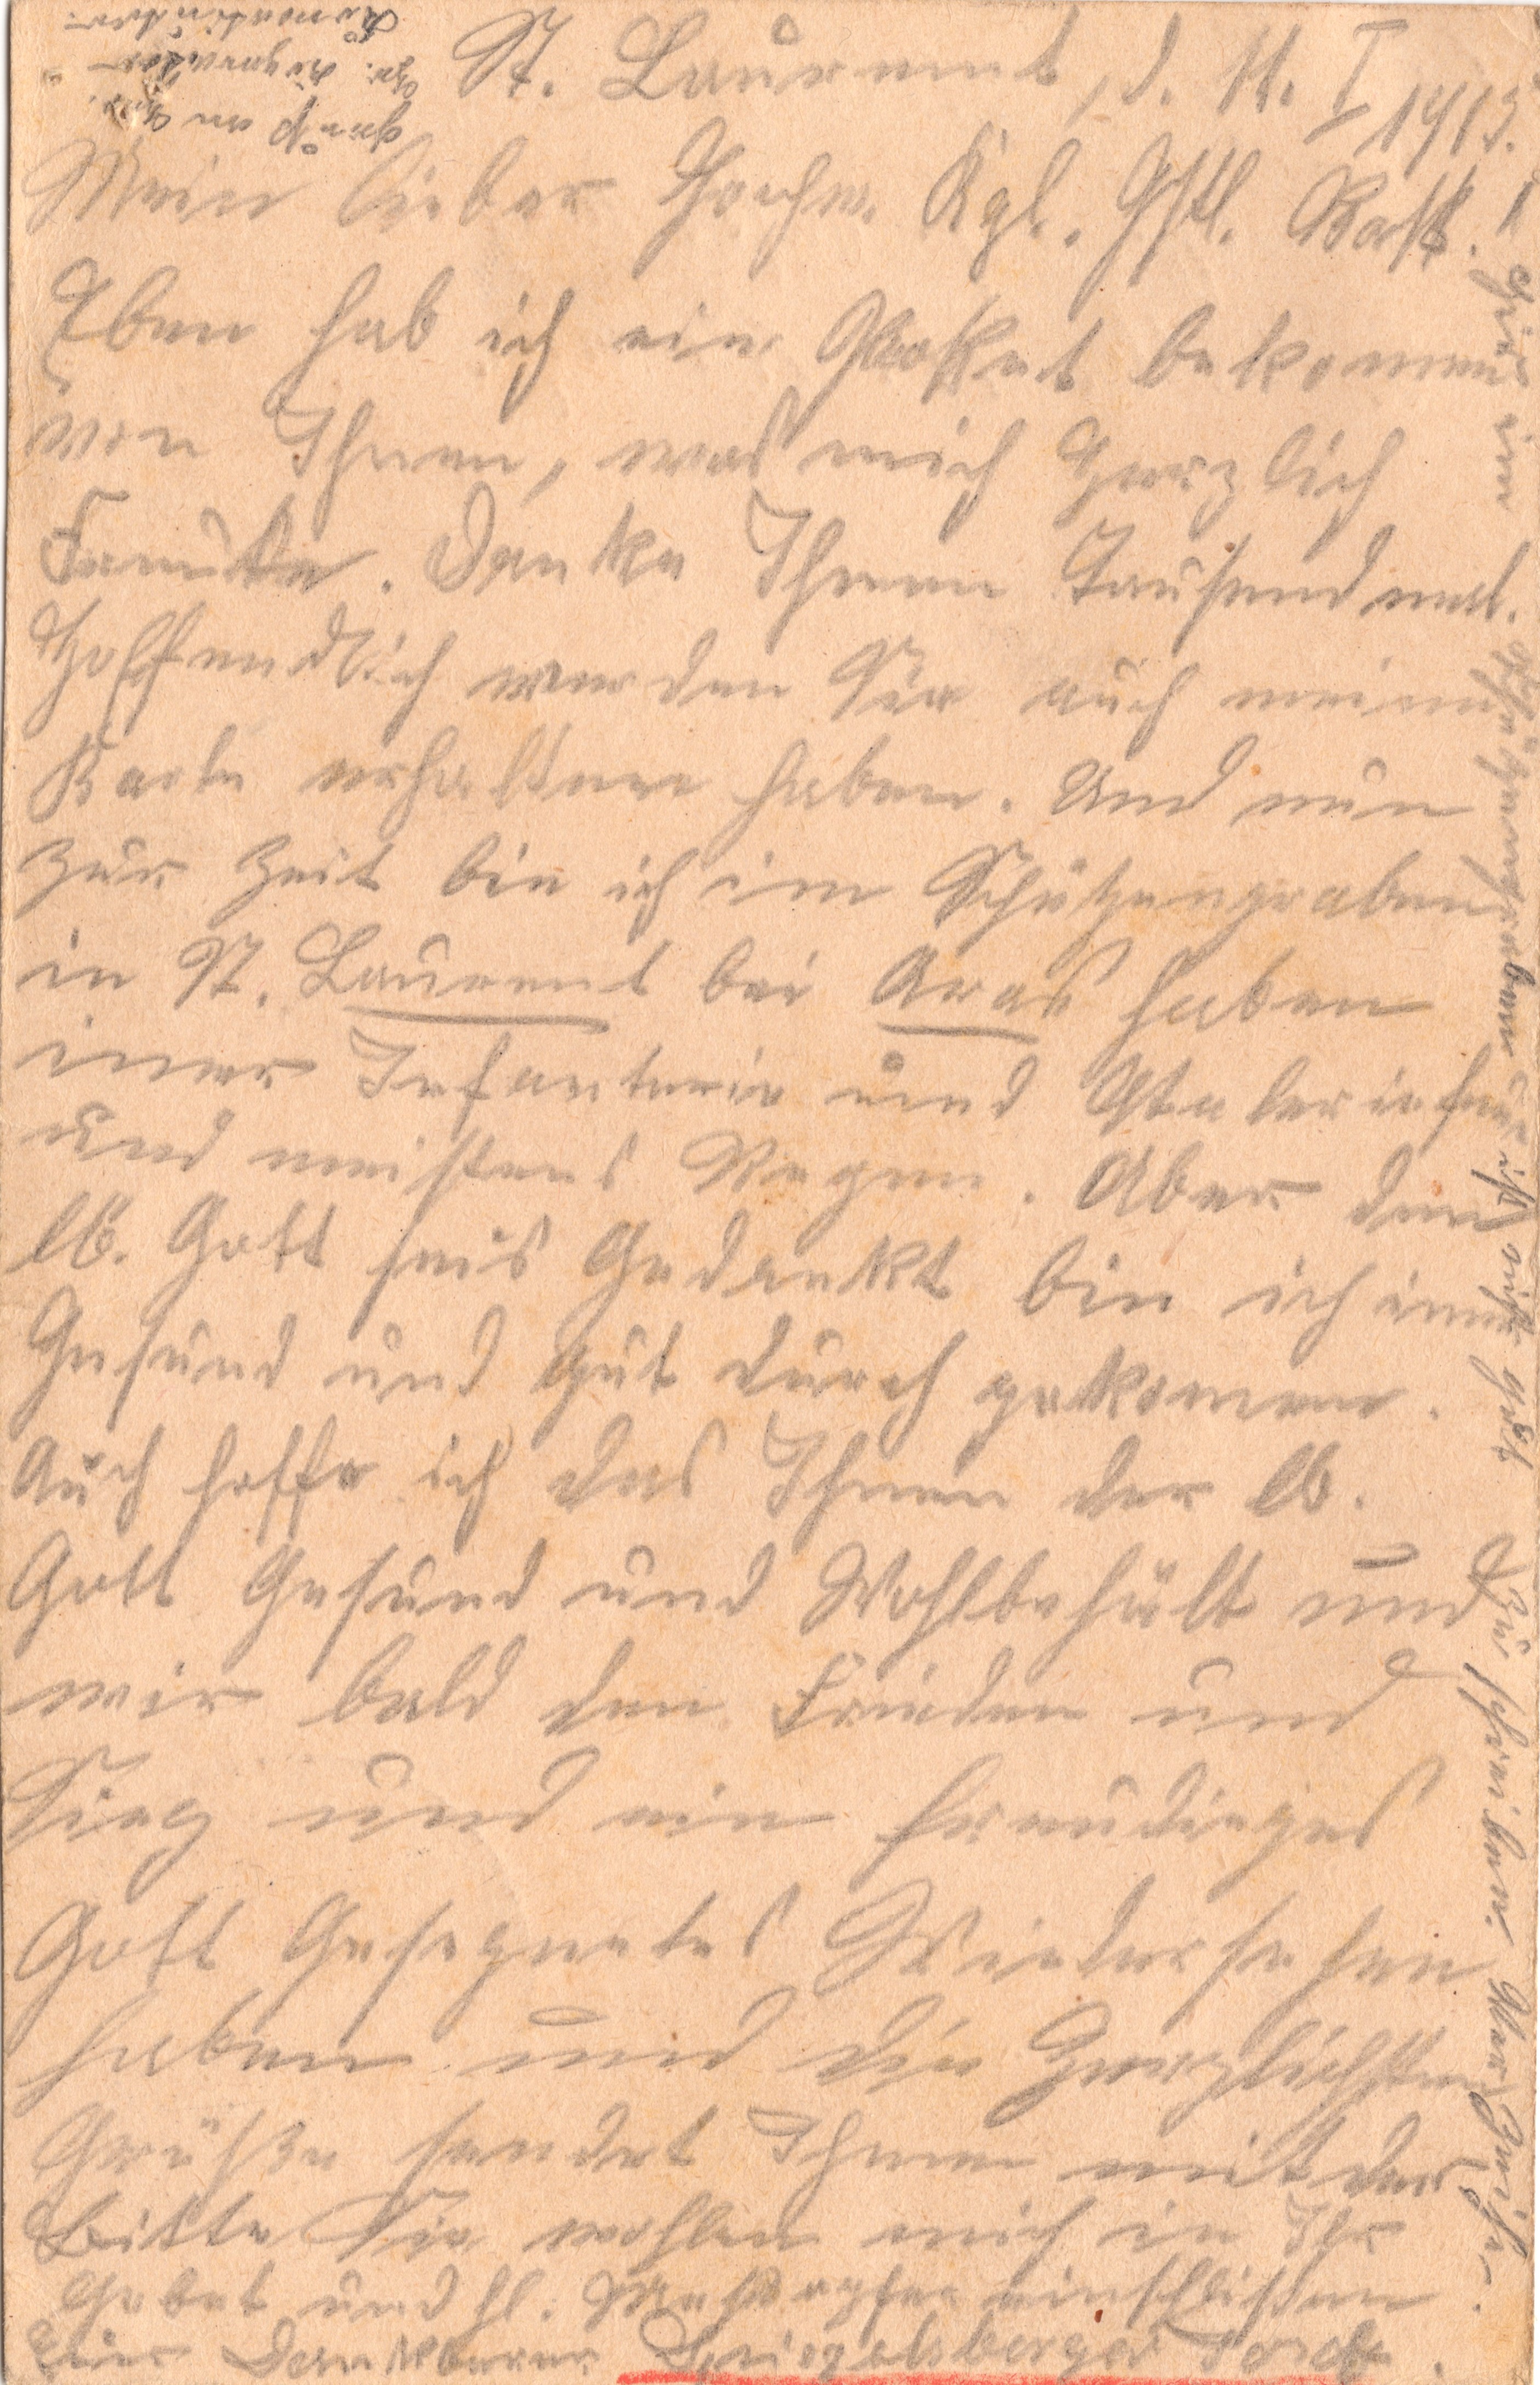 St. Laurent, d. 11. I 1915.
Mein lieber Hochw. Kgl. Gstl. Rath.
Eben hab ich ein Packet bekommen
von Ihnen, was mich Herzlich
Freute. Danke Ihnen Tausend mal.
Hoffendlich werden Sie auch meine
Karte erhalten haben. Und nun
zur Zeit bin ich im Schützengraben
in St. Laurent bei Aras haben
imer Infanterie und
und meistens Regen. Aber dem
lb. Gott seis Gedankt bin ich immer
Gesund und gut durch gekomen.
Auch hoffe ich das Ihnen der lb.
Gott Gesund und Wohlbehält und
wir bald den Frieden und
Sieg und ein freudieges
Gott Gesegnetes Wiedersehen
haben und die Herzlichsten
Grüße sendet Ihnen mit der
Bitte Sie wohlen mich in Ihr
Gebet und hl. Meßopfer einschlißen
Ihr Dankbarer Spiegelsberger
Gruß an
Hr.
Hier im Schützengraben ist nicht gut
zu schreiben. Verzeihe.